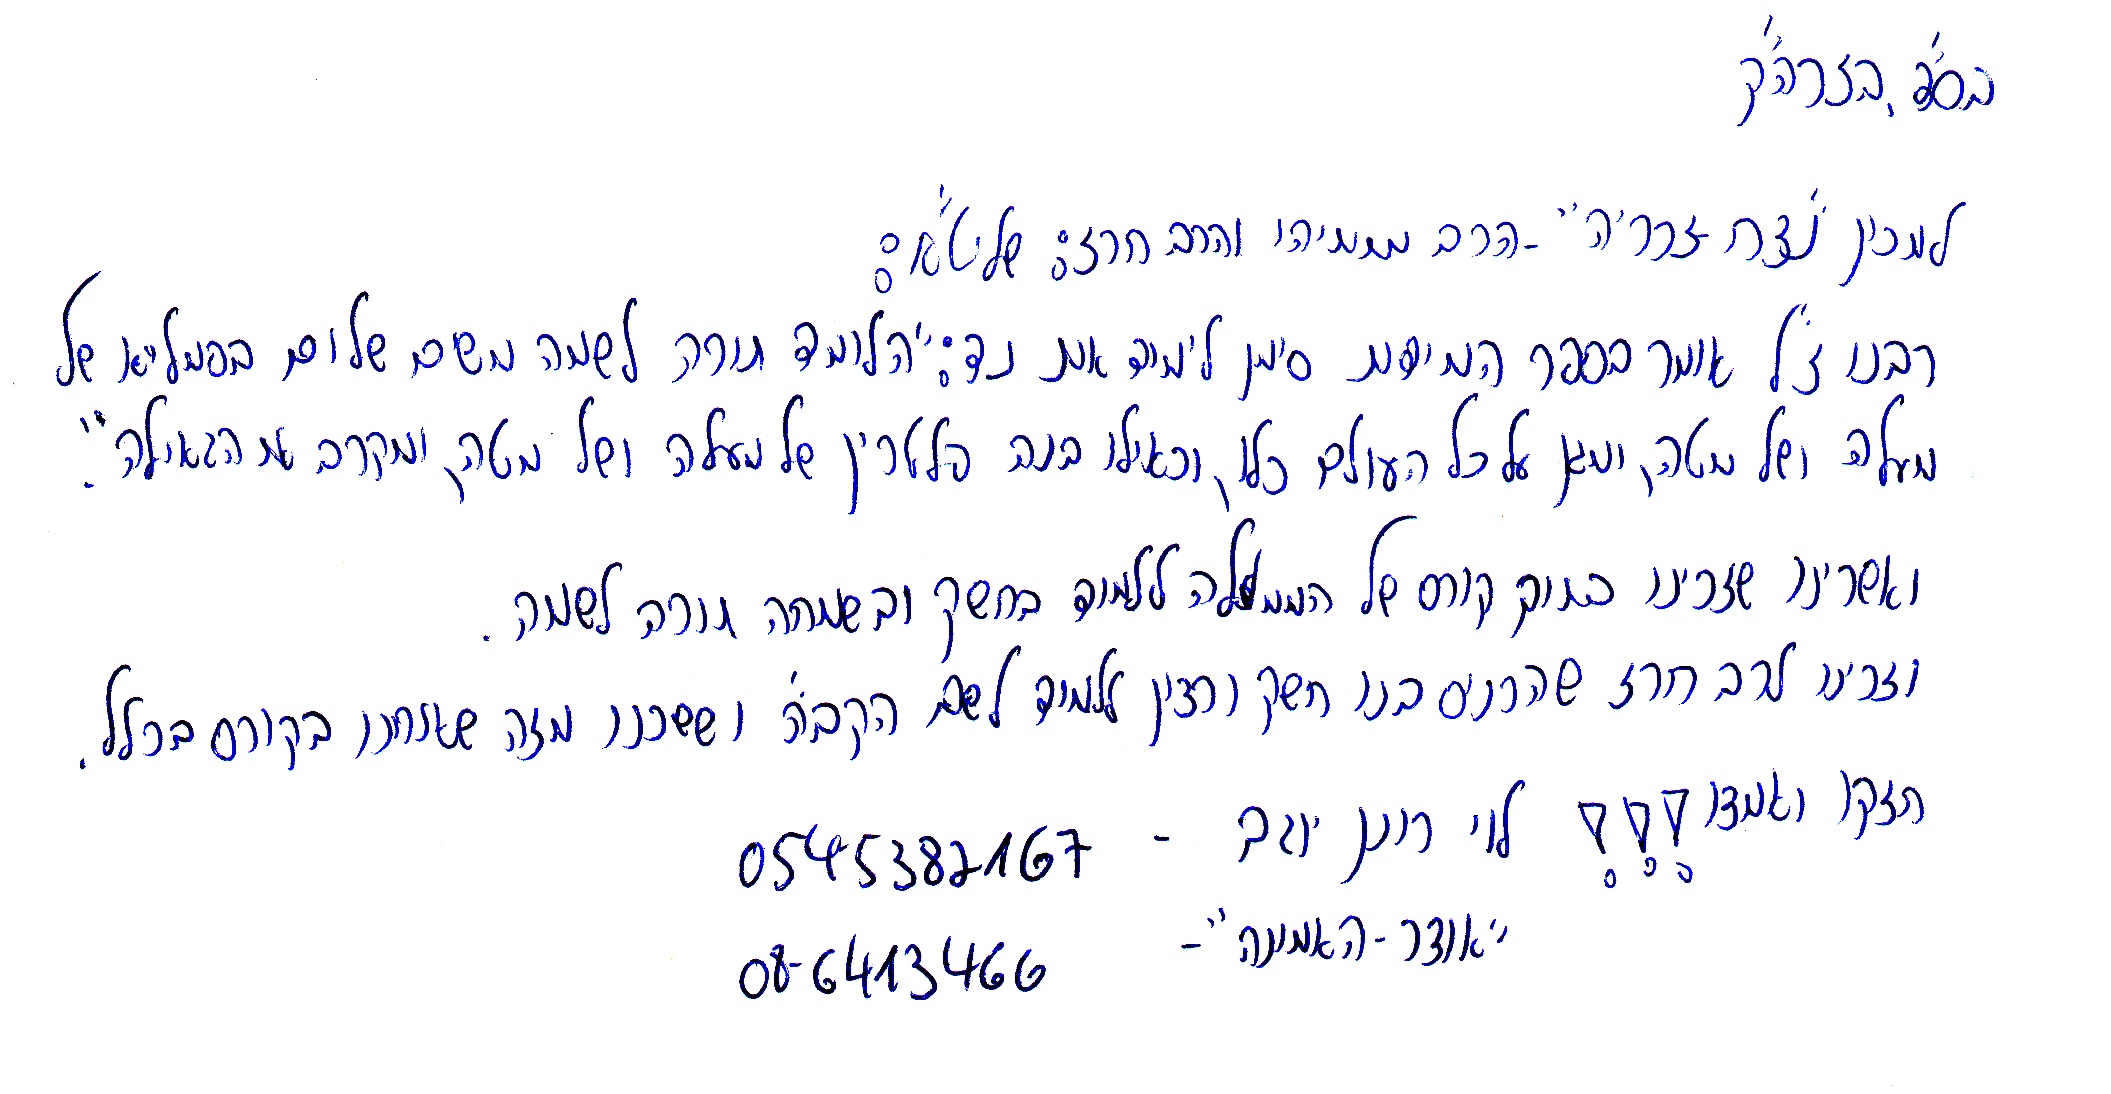 בס"ד, בזרה"ק
למכין "נצח זכריה" - הרב מתתיהו והרב חרז: שליט"א:
רבנו ז"ל אומר בספר המידות סימן לימוד אות נד: "הלומד תורה לשמה משים שלום בפמליא של
מעלה ושל מטה, ומגן על כל העולם כלו, וכאילו בנה פלטרין של מעלה ושל מטה, ומקרב את הגאולה".
ואשרינו שזכינו בתוך קורס של הממשלה ללמוד בחשק ובשמחה תורה לשמה.
וזכינו לרב חרז שהכניס בנו חשק ורצון ללמוד לשם הקב"ה וששכחנו מזה שאנחנו בקורס בכלל.
חזקו ואמצו!!! לוי רונן יוגב - 0545382167
"אוצר-האמונה" - 08-6413466